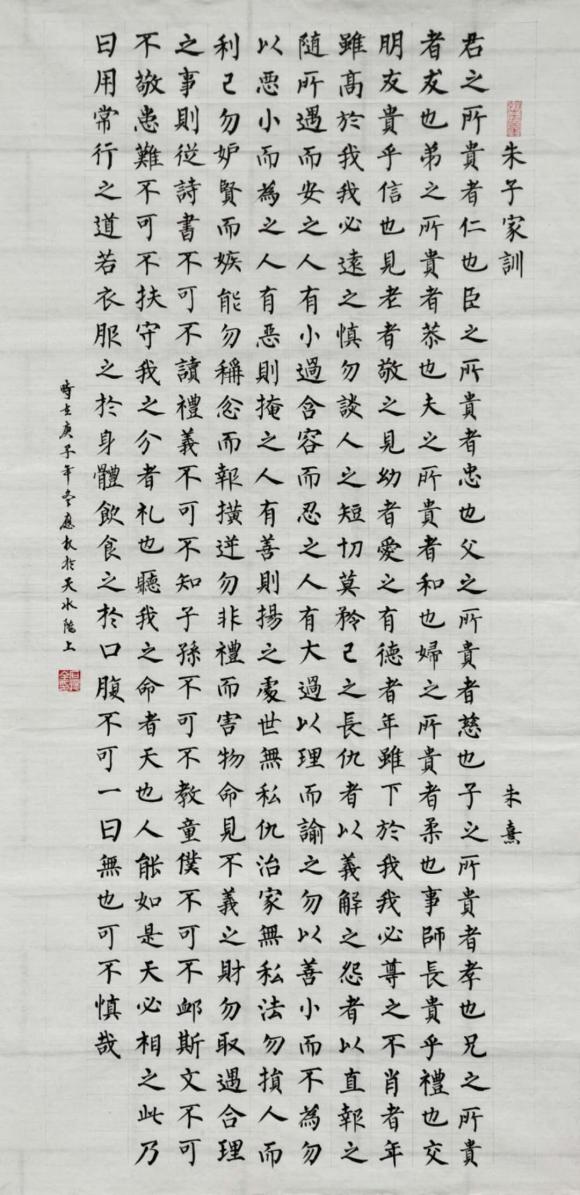 朱子家訓 朱熹
君之所貴者仁也臣之所貴者忠也父之所貴者慈也子之所貴者孝也兄之所貴
者友也弟之所貴者恭也夫之所貴者和也婦之所貴者柔也事師長貴乎禮也交
朋友貴乎信也見老者敬之見幼者愛之有德者年雖下於我我必尊之不肖者年
雖高於我我必遠之慎勿談人之短切莫矜己之長仇者以義解之怨者以直報之
隨所遇而安之人有小過含容而忍之人有大過以理而諭之勿以善小而不為勿
以惡小而為之人有惡則掩之人有善則揚之處世無私仇治家無私法勿損人而
利己勿妒賢而嫉能勿稱忿而報橫逆勿非禮而害物命見不義之財勿取遇合理
之事則從詩書不可不讀禮義不可不知子孫不可不教童僕不可不卹斯文不可
不敬患難不可不扶守我之分者礼也聽我之命者天也人能如是天必相之此乃
日用常行之道若衣服之於身體飲食之於口腹不可一日無也可不慎哉
時在庚子年冬應於天水上